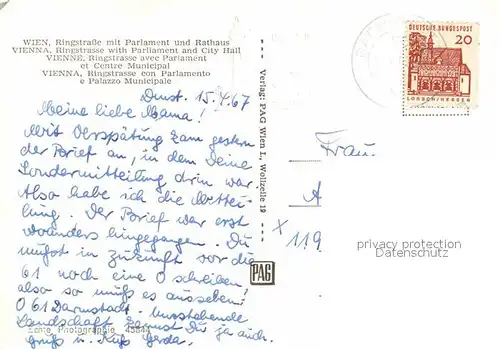 WIEN, Ringstraße mit Parlament und Rathaus
VIENNA, Ringstrasse with Parlament and City Hall
VIENNE, Ringstrasse avec Parlament
et Centre Municipal
VIENNA, Ringstrasse con Parlamento
e Palazzo Municipale
Dmst. 15.4.67
Meine liebe Mama!
Mit Verspätung kam gestern
der Brief an, in dem Deine
Sondermitteilung drin war.
Also habe ich die Mittei-
lung. Der Brief war erst
woanders hingegangen. Du
mußt in Zukunft vor die
61 noch eine 0 schreiben!
also so muß es aussehen:
061 Darmstadt.
Landschaft kennst Du ja auch.
Gruß u. Kuß Gerda.
Echte Photographie
Verlag: PAG Wien I., Wollzeile 19
PAG
DEUTSCHE BUNDESPOST
20
LORSCH/HESSEN
Frau
A
x 119
privacy protection
Datenschutz